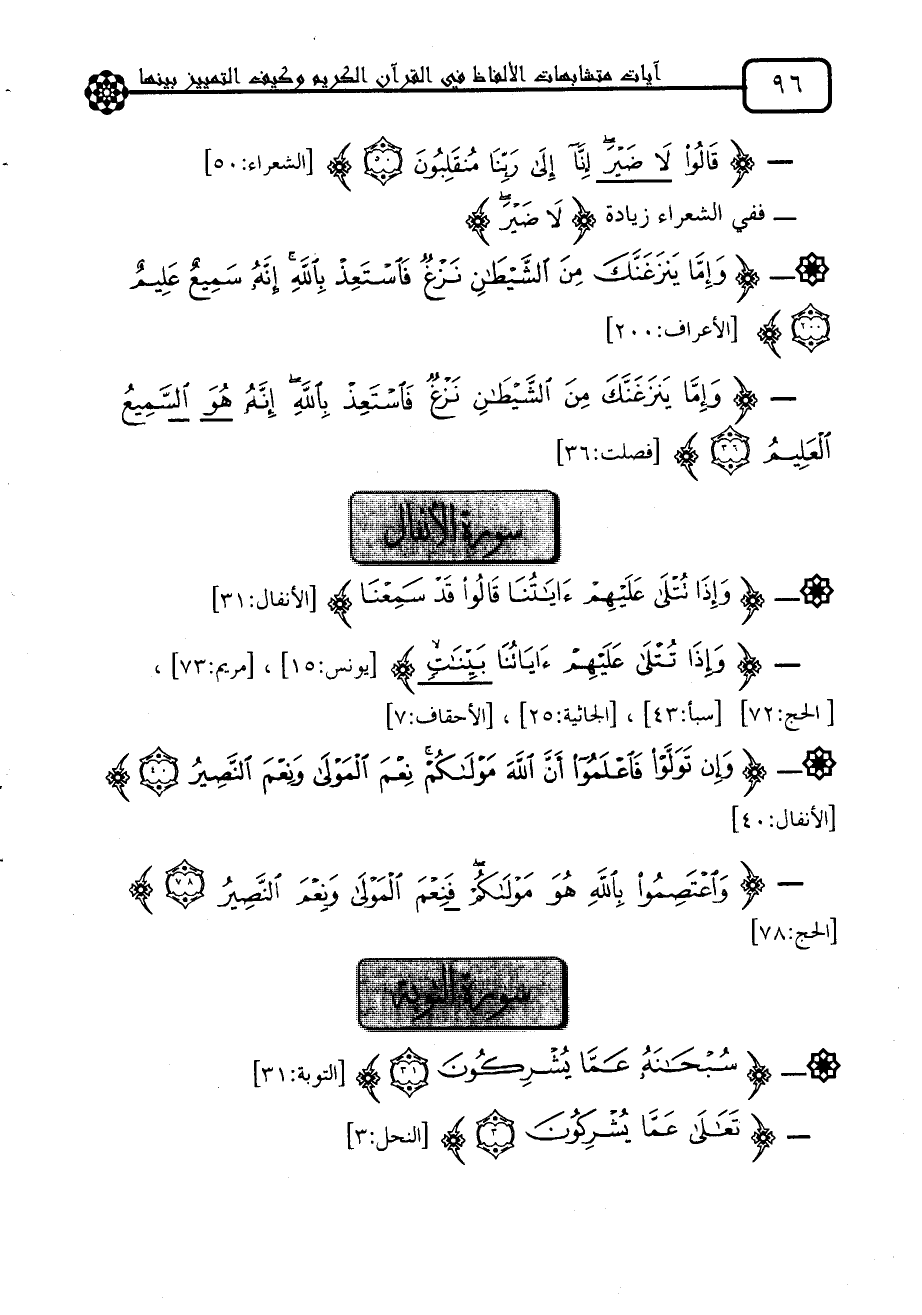 ٩٦
آيات متشابهات الألفاظ في القرآن الكريم وكيف التمييز بينها
— ﴿ قَالُواْ لَا ضَيْرَۖ إِنَّآ إِلَىٰ رَبِّنَا مُنقَلِبُونَ ٥٠ ﴾ [الشعراء:٥٠]
— ففي الشعراء زيادة ﴿ لَا ضَيْرَۖ ﴾
— ﴿ وَإِمَّا يَنزَغَنَّكَ مِنَ ٱلشَّيْطَٰنِ نَزْغٌ فَٱسْتَعِذْ بِٱللَّهِۚ إِنَّهُۥ سَمِيعٌ عَلِيمٌ
٢٠٠ ﴾ [الأعراف:٢٠٠]
— ﴿ وَإِمَّا يَنزَغَنَّكَ مِنَ ٱلشَّيْطَٰنِ نَزْغٌ فَٱسْتَعِذْ بِٱللَّهِۖ إِنَّهُۥ هُوَ ٱلسَّمِيعُ
ٱلْعَلِيمُ ٣٦ ﴾ [فصلت:٣٦]
سورة الأنفال
— ﴿ وَإِذَا تُتْلَىٰ عَلَيْهِمْ ءَايَٰتُنَا قَالُواْ قَدْ سَمِعْنَا ﴾ [الأنفال:٣١]
— ﴿ وَإِذَا تُتْلَىٰ عَلَيْهِمْ ءَايَاتُنَا بَيِّنَٰتٍۙ ﴾ [يونس:١٥] ، [مريم:٧٣] ،
[الحج:٧٢] [سبأ:٤٣] ، [الجاثية:٢٥] ، [الأحقاف:٧]
— ﴿ وَإِن تَوَلَّوْاْ فَٱعْلَمُوٓاْ أَنَّ ٱللَّهَ مَوْلَىٰكُمْۚ نِعْمَ ٱلْمَوْلَىٰ وَنِعْمَ ٱلنَّصِيرُ ٤٠ ﴾
[الأنفال:٤٠]
— ﴿ وَٱعْتَصِمُواْ بِٱللَّهِ هُوَ مَوْلَىٰكُمْۖ فَنِعْمَ ٱلْمَوْلَىٰ وَنِعْمَ ٱلنَّصِيرُ ٧٨ ﴾
[الحج:٧٨]
سورة التوبة
— ﴿ سُبْحَٰنَهُۥ عَمَّا يُشْرِكُونَ ٣١ ﴾ [التوبة:٣١]
— ﴿ تَعَٰلَىٰ عَمَّا يُشْرِكُونَ ٣ ﴾ [النحل:٣]